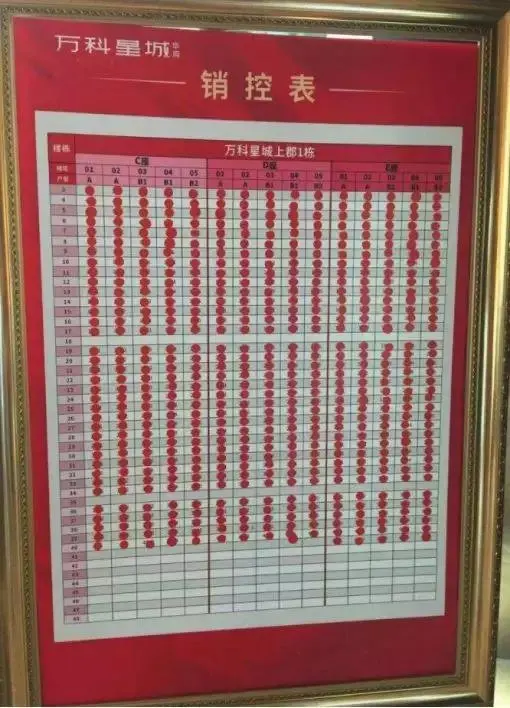 万科星城 华府
销控表
楼栋 万科星城上郡1栋
C座 D座 E座
01 02 03 04 05 01 02 03 04 05 01 02
户型 A A B1 B1 B2 A A B1 B1 B2 A A B2 B1
3
4
5
6
7
8
9
10
11
12
13
14
15
16
17
18
19
20
21
22
23
24
25
26
27
28
29
30
31
32
33
34
35
36
37
38
39
40
41
42
43
44
45
46
47
48